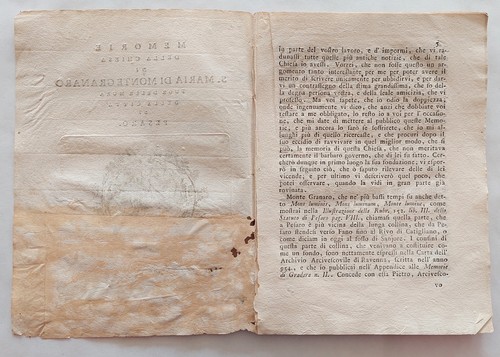 MEMORIE
DELLA CHIESA
DI
S. MARIA DI MONTEGRANARO
PESARO
3.
sì parte del vostro favore, e d'impormi, che vi ra-
dunassi tutte quelle più antiche notizie, che di tale
Chiesa io avessi. Vorrei, che non fosse questo un ar-
gomento tanto interessante per me per poter avere il
merito di scrivere unicamente per ubbidirvi, e per dar-
vi un contrassegno della stima grandissima, che io del-
la degna persona vostra, e della sante amicizia, che vi
professo. Ma voi sapete, che io odio la doppiezza;
onde ingenuamente vi dico, che anzi che dobbiate voi
restare a me obbligato, lo resto io a voi per l'occasio-
ne, che mi date di mettere al pubblico queste Memo-
rie, e più ancora lo sarò se soffrirete, che io mi al-
lunghi più di quello ricercaste, e che procuri dopo il
suo eccidio di ravvivare in quel miglior modo, che si
può, la memoria di questa Chiesa, che non meritava
certamente il barbaro governo, che di lei fu fatto. Cer-
cherò dunque in primo luogo la sua fondazione; vi espor-
rò in seguito ciò, che ò saputo rilevare delle di lei
vicende; e per ultimo vi descriverò quel poco, che
potei osservare, quando la vidi in gran parte già
rovinata.
Monte Granaro, che ne' più bassi tempi fu anche det-
to Mons luminis, Mons luminum, Monte lumine, come
mostrai nella Illustrazione della Rubr. 151. lib. III. dello
Statuto di Pesaro pag. VIII. chiamasi quella parte, che
a Pesaro è più vicina della lunga collina, che da Pe-
saro stendesi verso Fano sino al Rivo di Catigliano, o
come diciam in oggi al fosso di Sanjore. I confini di
questa parte di collina, che venivano a costituire co-
me un fondo, sono nettamente espressi nella Carta dell'
Archivio Arcivescovile di Ravenna, scritta nell'anno
994., e che io pubblicai nell'Appendice alle Memorie
di Gradara n. II. Concede con essa Pietro, Arcivesco-
vo